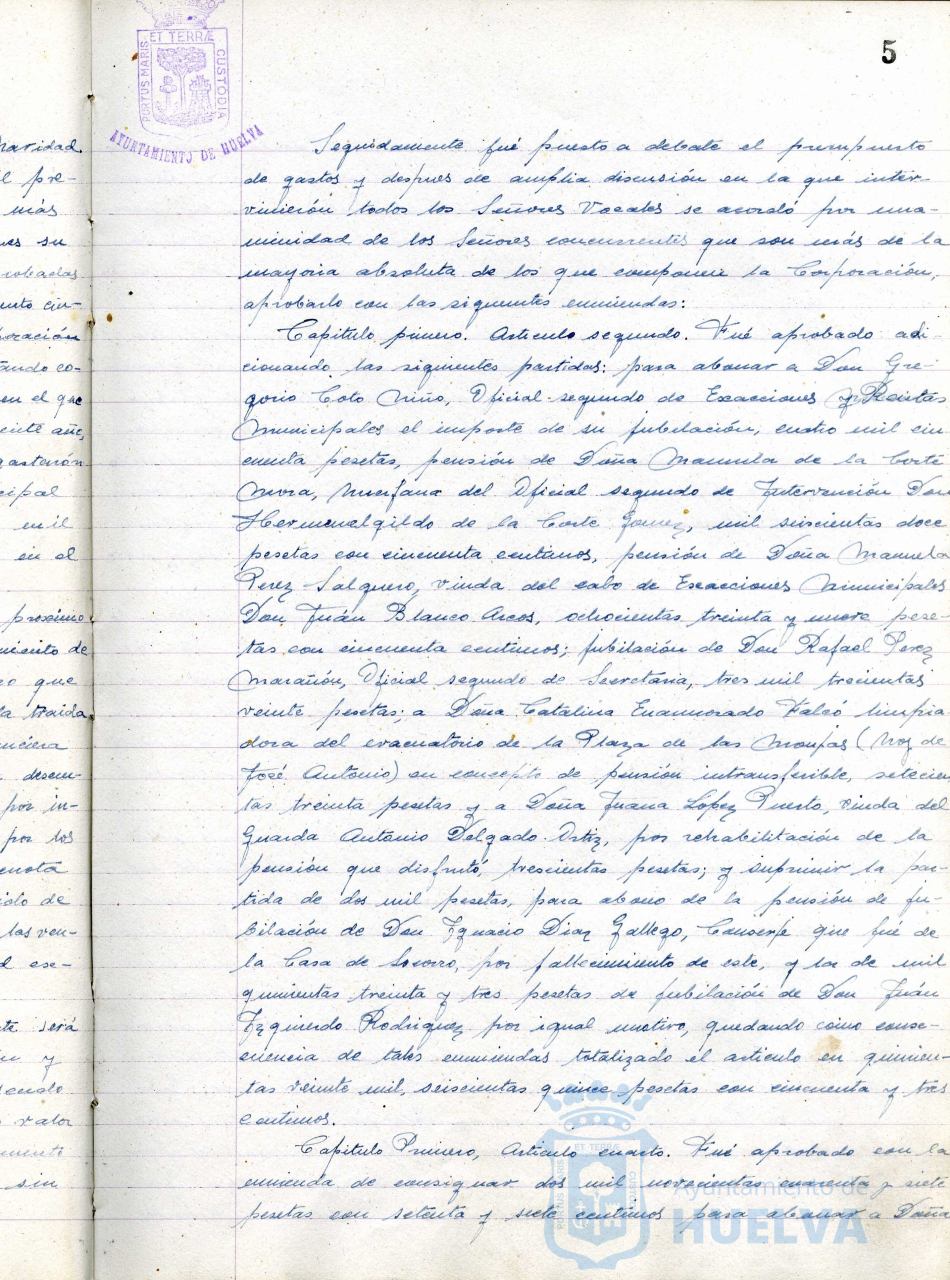 5
ET TERRÆ
PORTUS MARIS
CUSTODIA
AYUNTAMIENTO DE HUELVA
Seguidamente fué puesto a debate el presupuesto
de gastos y despues de amplia discusión en la que inter-
vinierón todos los Señores Vocales se acordó por una-
nimidad de los Señores concurrentes que son más de la
mayoria absoluta de los que componen la Corporación,
aprobarlo con las siguientes enmiendas:
Capitulo primero. Articulo segundo. Fué aprobado adi-
cionando las siguientes partidas: para abonar a Don Gre-
gorio Coto Niño, Oficial segundo de Exacciones y Rentas
Municipales el importe de su jubilación, cuatro mil cin-
cuenta pesetas, pensión de Doña Manuela de la Corte
Mora, huerfana del Oficial segundo de Intervención Don
Hermenalgildo de la Corte Gomez, mil seiscientas doce
pesetas con cincuenta centimos, pensión de Doña Manuela
Perez Salguero, viuda del cabo de Exacciones Municipales
Don Juán Blanco Arcos, ochocientas treinta y nueve pese-
tas con cincuenta centimos; jubilación de Don Rafael Perez
Marañón, Oficial segundo de Secretaria, tres mil trecientas
veinte pesetas; a Doña Catalina Enamorado Falcó limpia
dora del evacuatorio de la Plaza de las Monjas (hoy de
José Antonio) en concepto de pensión intransferible, setecien
tas treinta pesetas y a Doña Juana López Puerto, viuda del
Guarda Antonio Delgado Ortiz, por rehabilitación de la
pensión que disfrutó, trescientas pesetas; y suprimir la par-
tida de dos mil pesetas, para abono de la pensión de ju-
bilación de Don Ignacio Diaz Gallego, Conserje que fué de
la Casa de Socorro, por fallecimiento de este, y la de mil
quinientas treinta y tres pesetas de jubilación de Don Juán
Izquierdo Rodriguez por igual motivo, quedando como conse-
cuencia de tales enmiendas totalizado el articulo en quinien-
tas veinte mil, seiscientas quince pesetas con cincuenta y tres
centimos.
Capitulo Primero, Articulo cuarto. Fué aprobado con la
enmienda de consignar dos mil novecientas cuarenta y siete
pesetas con setenta y siete centimos para abonar a Doña
Ayuntamiento de
HUELVA